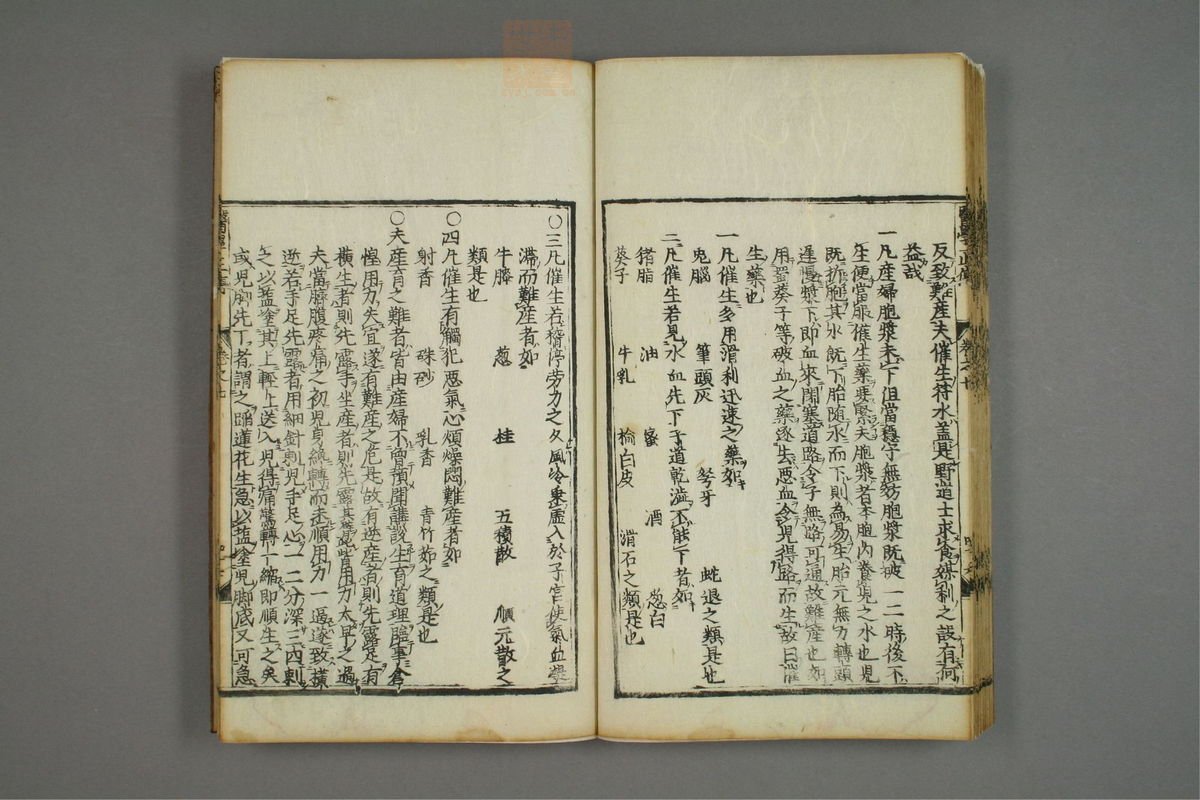 反致難産夫催生符水蓋是野道士求食媒利之設有何
益哉
一凡産婦胞漿未下但當穩守無妨胞漿既破一二時後不
生便當服催生藥要緊夫胞漿者本胞内養児之水也児
既折胞其水既下胎随水而下則為易生胎元無力轉頭
遲慢漿下即血來閉塞道路令子無路可通故難産也如
用蜀葵子等破血之藥逐去悪血令児得路而生故曰催
生藥也
一凡催生多用滑利迅速之藥如
兎腦 筆頭灰 弩牙 蛇退之類是也
二凡催生若見水血先下子道乾澁不能下者如
猪脂 油 蜜 酒 葱白
葵子 牛乳 榆白皮 滑石之類是也
〇三凡催生若稽停劳力之久風冷乗虚入於子宮使氣血凝
滞而難産者如
牛膝 葱 桂 五積散 順元散之
類是也
〇四凡催生有觸犯悪氣心煩燥悶難産者如
射香 硃砂 乳香 青竹茹之類是也
〇夫産育之難者皆由産婦不曾預聞講說生育道理臨事倉
惶用力失宜遂有難産之厄是故有逆産者則先露足有
横生者則先露手坐産者則先露其臀此皆用力太早之過
夫當臍腹疼痛之初児身纔轉而未順用力一逼遂致横
逆若手足先露者用細針刺児手足心一二分深三四刺
之以塩塗其上輕上送入児得痛驚轉一縮即順生之矣
或児脚先下者謂之踏蓮花生急以塩塗児脚底又可急